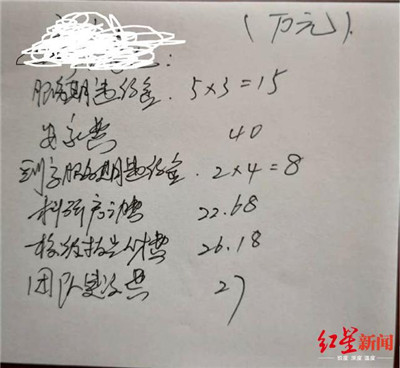 (万元).
服务期违约金. 5×3=15
安家费 40
服务期违约金. 2×4=8
科研启动费 22.68
校级人才费 26.18
团队建设费 27
红星新闻
深度 温度